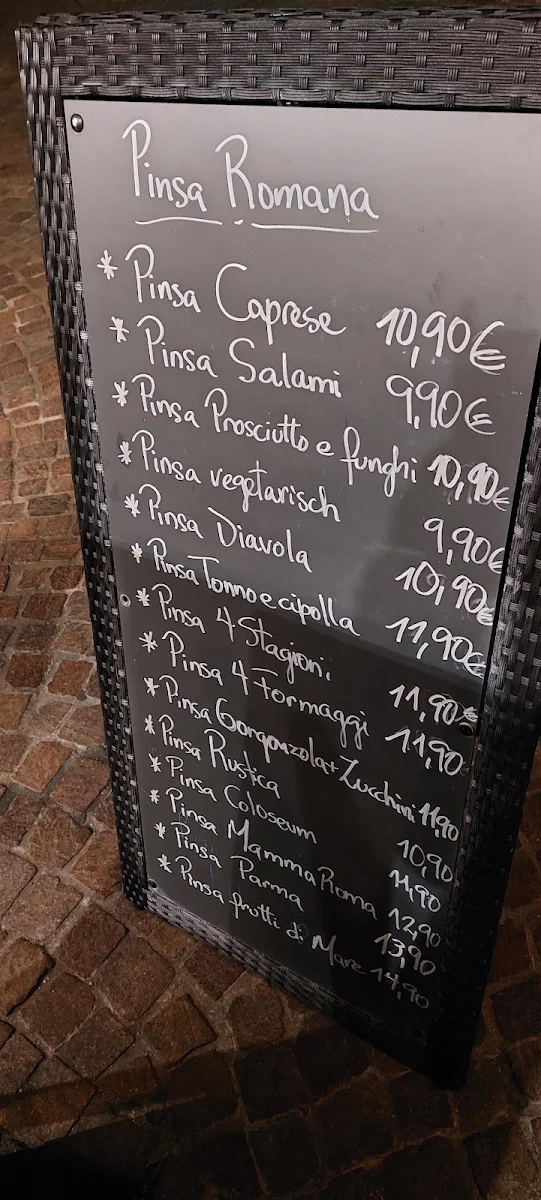 Pinsa Romana
* Pinsa Caprese 10,90€
* Pinsa Salami 9,90€
* Pinsa Prosciutto e funghi 10,90€
* Pinsa vegetarisch 9,90€
* Pinsa Diavola 10,90€
* Pinsa Tonno e cipolla 11,90€
* Pinsa 4 Stagioni 11,90€
* Pinsa 4 Formaggi 11,90
* Pinsa Gorgonzola + Zucchini 11,90
* Pinsa Rustica 10,90
* Pinsa Coloseum 11,90
* Pinsa Mamma Roma 12,90
* Pinsa Parma 13,90
* Pinsa frutti di Mare 14,90